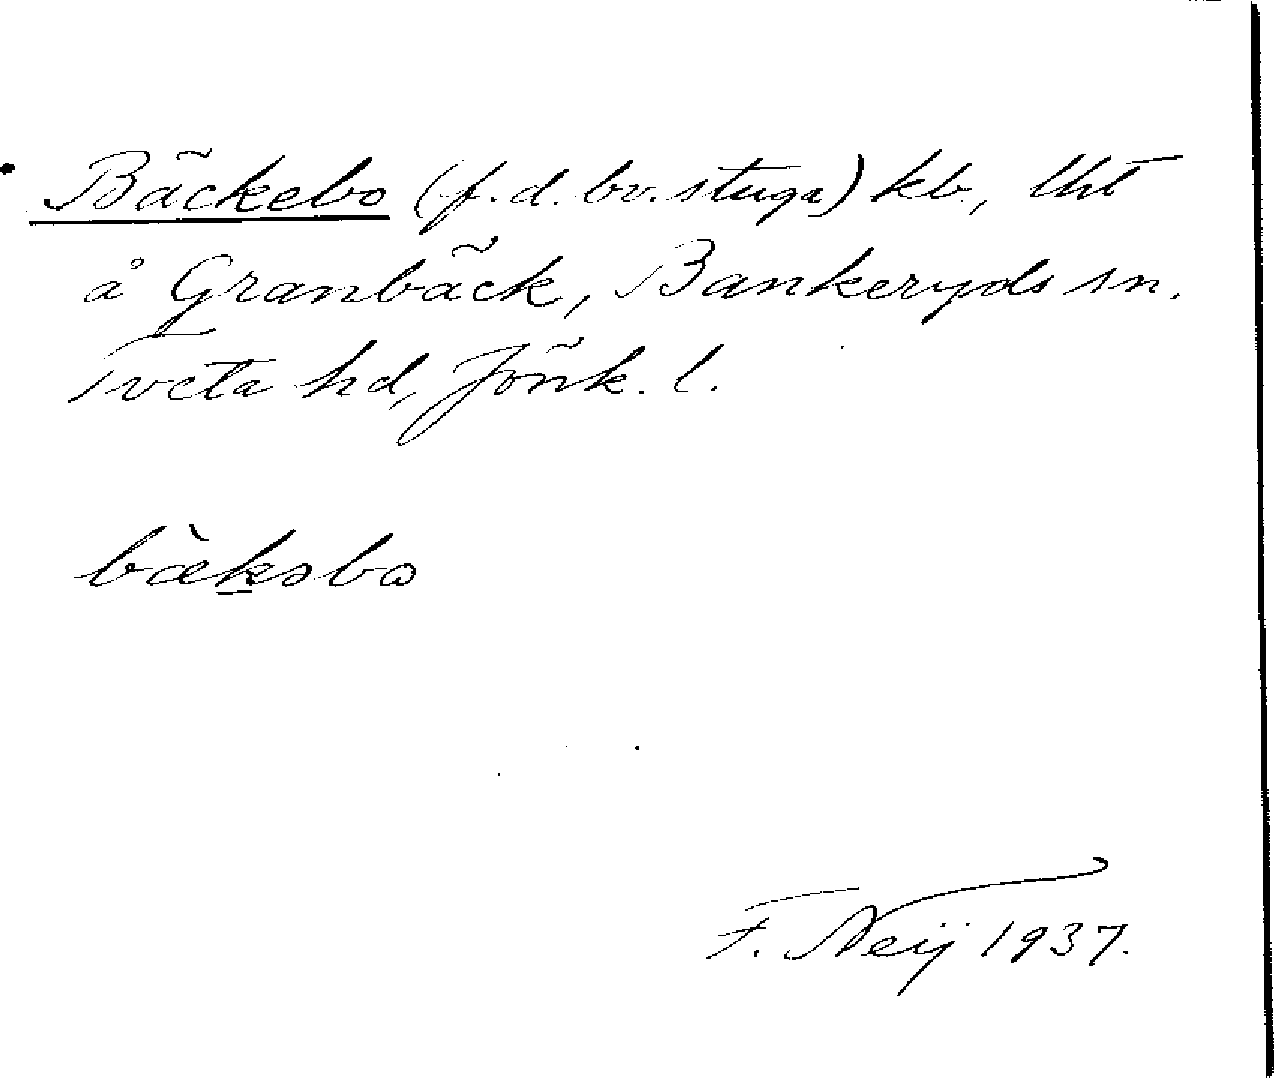 Bäckebo (f.d. bv. stuga) kb., lht
å Granbäck, Bankeryds sn.
Tveta hd, Jönk. l.
bæ̀kəbo
F. Neij 1937.